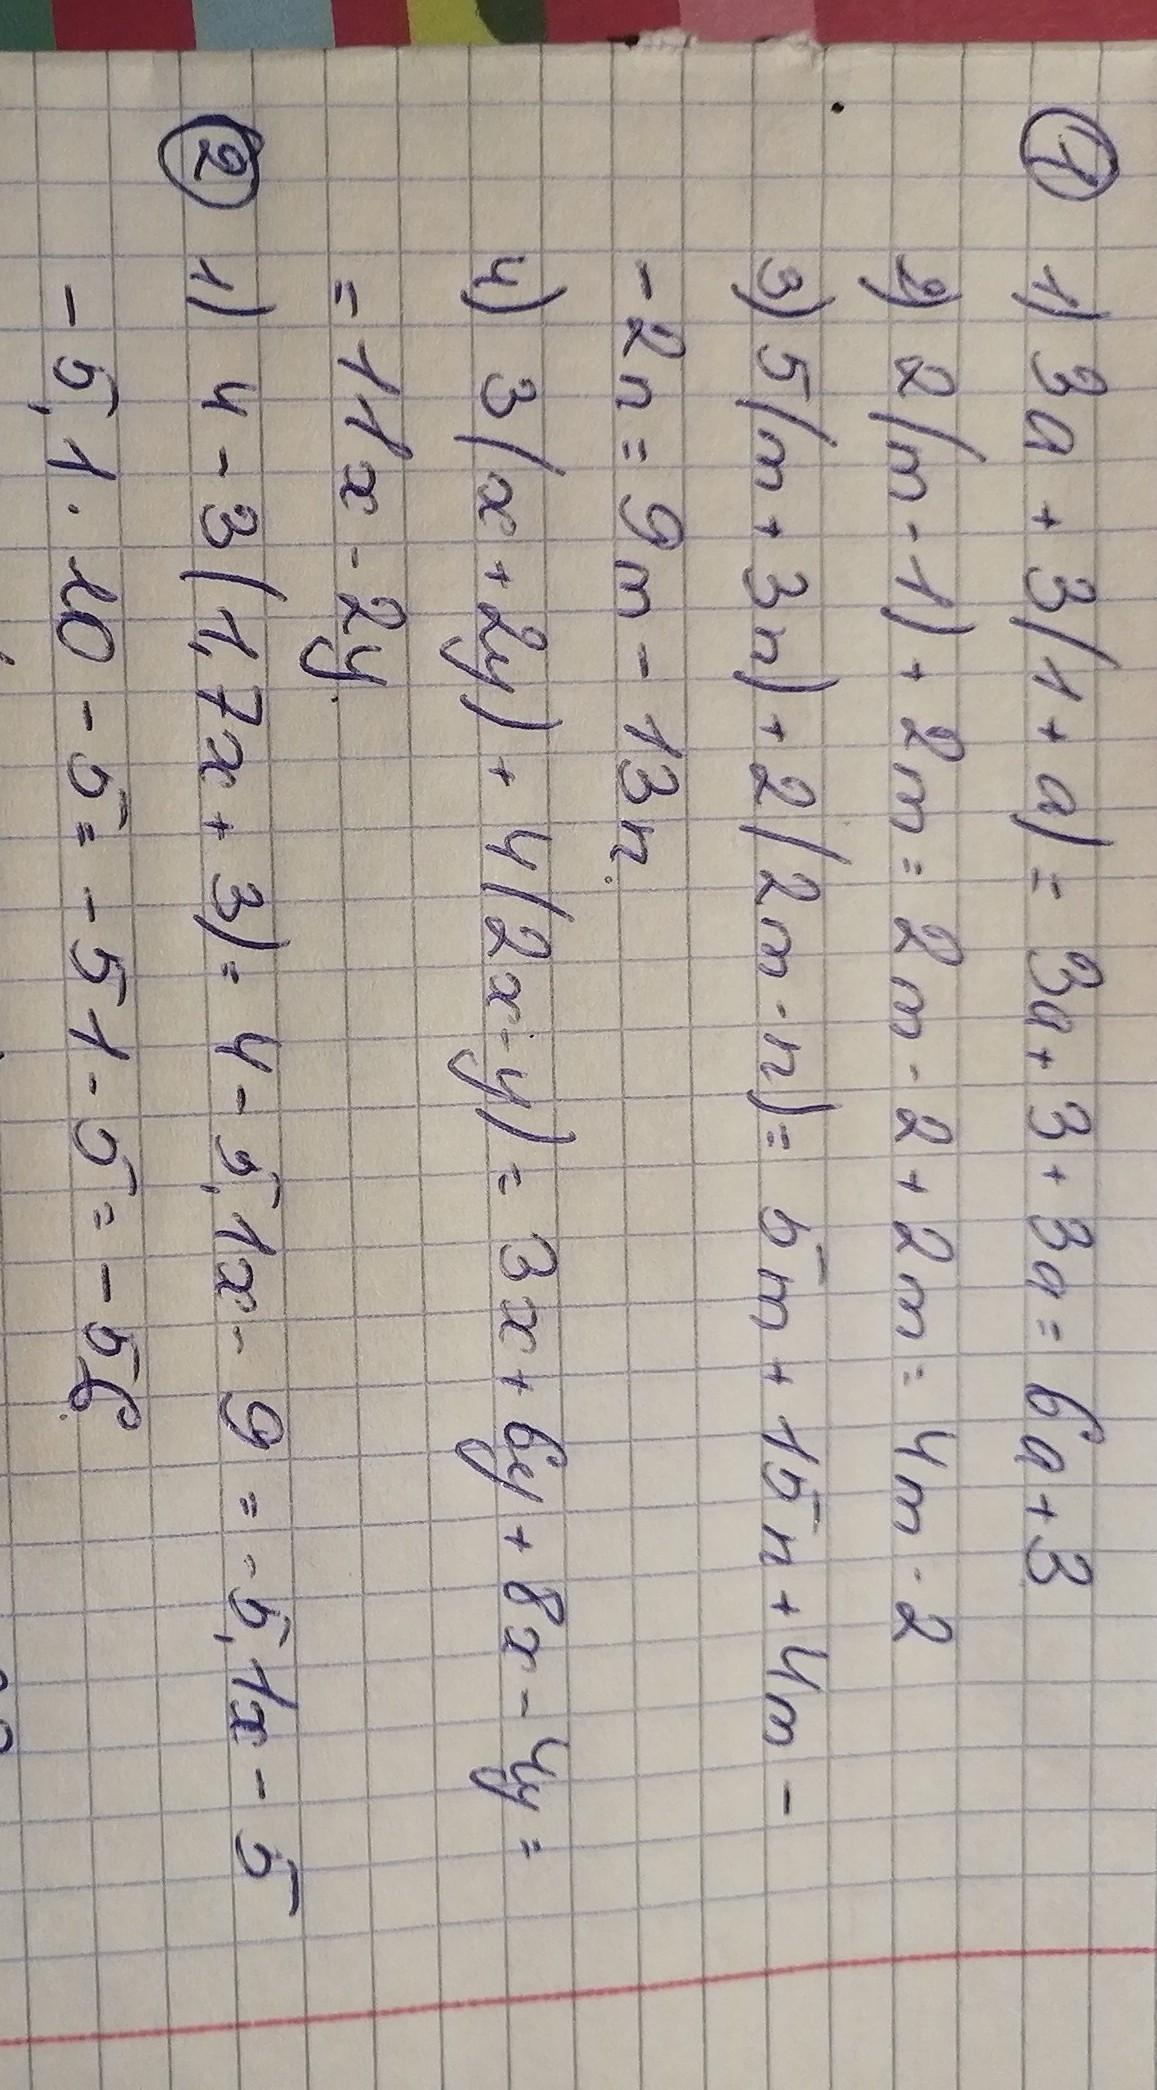 ① 1) 3a + 3(1 + a) = 3a + 3 + 3a = 6a + 3
2) 2(m - 1) + 2m = 2m - 2 + 2m = 4m - 2
3) 5(m + 3n) + 2(2m - n) = 5m + 15n + 4m -
- 2n = 9m - 13n.
4) 3(x + 2y) + 4(2x - y) = 3x + 6y + 8x - 4y =
= 11x - 2y.
② 1) 4 - 3(1,7x + 3) = 4 - 5,1x - 9 = -5,1x - 5
- 5,1 · 10 - 5 = - 51 - 5 = - 56.